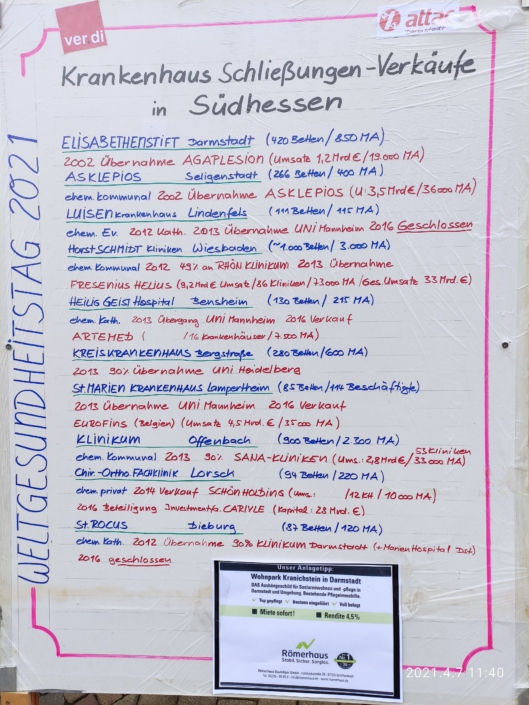 ver di
attac
Darmstadt
Krankenhaus Schließungen-Verkäufe
in Südhessen
WELTGESUNDHEITSTAG 2021
ELISABETHENSTIFT Darmstadt (420 Betten/850 MA)
2002 Übernahme AGAPLESION (Umsatz 1,2Mrd€/19.000 MA)
ASKLEPIOS Seligenstadt (266 Betten/400 MA)
ehem. kommunal 2002 Übernahme ASKLEPIOS (U:3,5Mrd€/36000 MA)
LUISEN Krankenhaus Lindenfels (111 Betten/115 MA)
ehem. Ev. 2012 Kath. 2013 Übernahme UNI Mannheim 2016 Geschlossen
Horst SCHMIDT Kliniken Wiesbaden (~1.000 Betten/3.000 MA)
ehem Kommunal 2012 49% an RHÖN KLINIKUM 2013 Übernahme
FRESENIUS HELIUS (9,2Mrd € Umsatz/86 Kliniken/73000 MA/Ges. Umsatz 33 Mrd.€)
HEILIG GEIST Hospital Bensheim (130 Betten/215 MA)
ehem. Kath. 2013 Übergang UNI Mannheim 2016 Verkauf
ARTEMED ( /16 Krankenhäuser/7.500 MA)
KREISKRANKENHAUS Bergstraße (280 Betten/600 MA)
2013 90% Übernahme Uni Heidelberg
St. MARIEN KRANKENHAUS Lampertheim (85 Betten/114 Beschäftigte)
2013 Übernahme UNI Mannheim 2016 Verkauf
EUROFINS (Belgien) (Umsatz 4,5 Mrd. €/35000 MA)
KLINIKUM Offenbach (900 Betten/2.300 MA)
ehem. Kommunal 2013 90% SANA-KLINIKEN (Ums.: 2,8Mrd€/53 Kliniken 33000 MA)
Chir.-Ortho. FACHKLINIK Lorsch (94 Betten/220 MA)
ehem privat 2014 Verkauf SCHÖN HOLDING (Ums.: /12 KH/10000 MA)
2016 Beteiligung Investmentfo. CARLYLE (Kapital: 28 Mrd. €)
St. ROCUS Dieburg (87 Betten/120 MA)
ehem Kath. 2012 Übernahme 90% KLINIKUM Darmstadt (+ Marien Hospital Dst)
2016 geschlossen
Unser Anlagetipp:
Wohnpark Kranichstein in Darmstadt
DAS Aushängeschild für Seniorenwohnen und -pflege in
Darmstadt und Umgebung. Bestehende Pflegeimmobilie.
Top gepflegt Bestens eingeführt Voll belegt
Miete sofort! Rendite 4,5%
Römerhaus
Stabil. Sicher. Sorglos.
2021.4.7 11:40